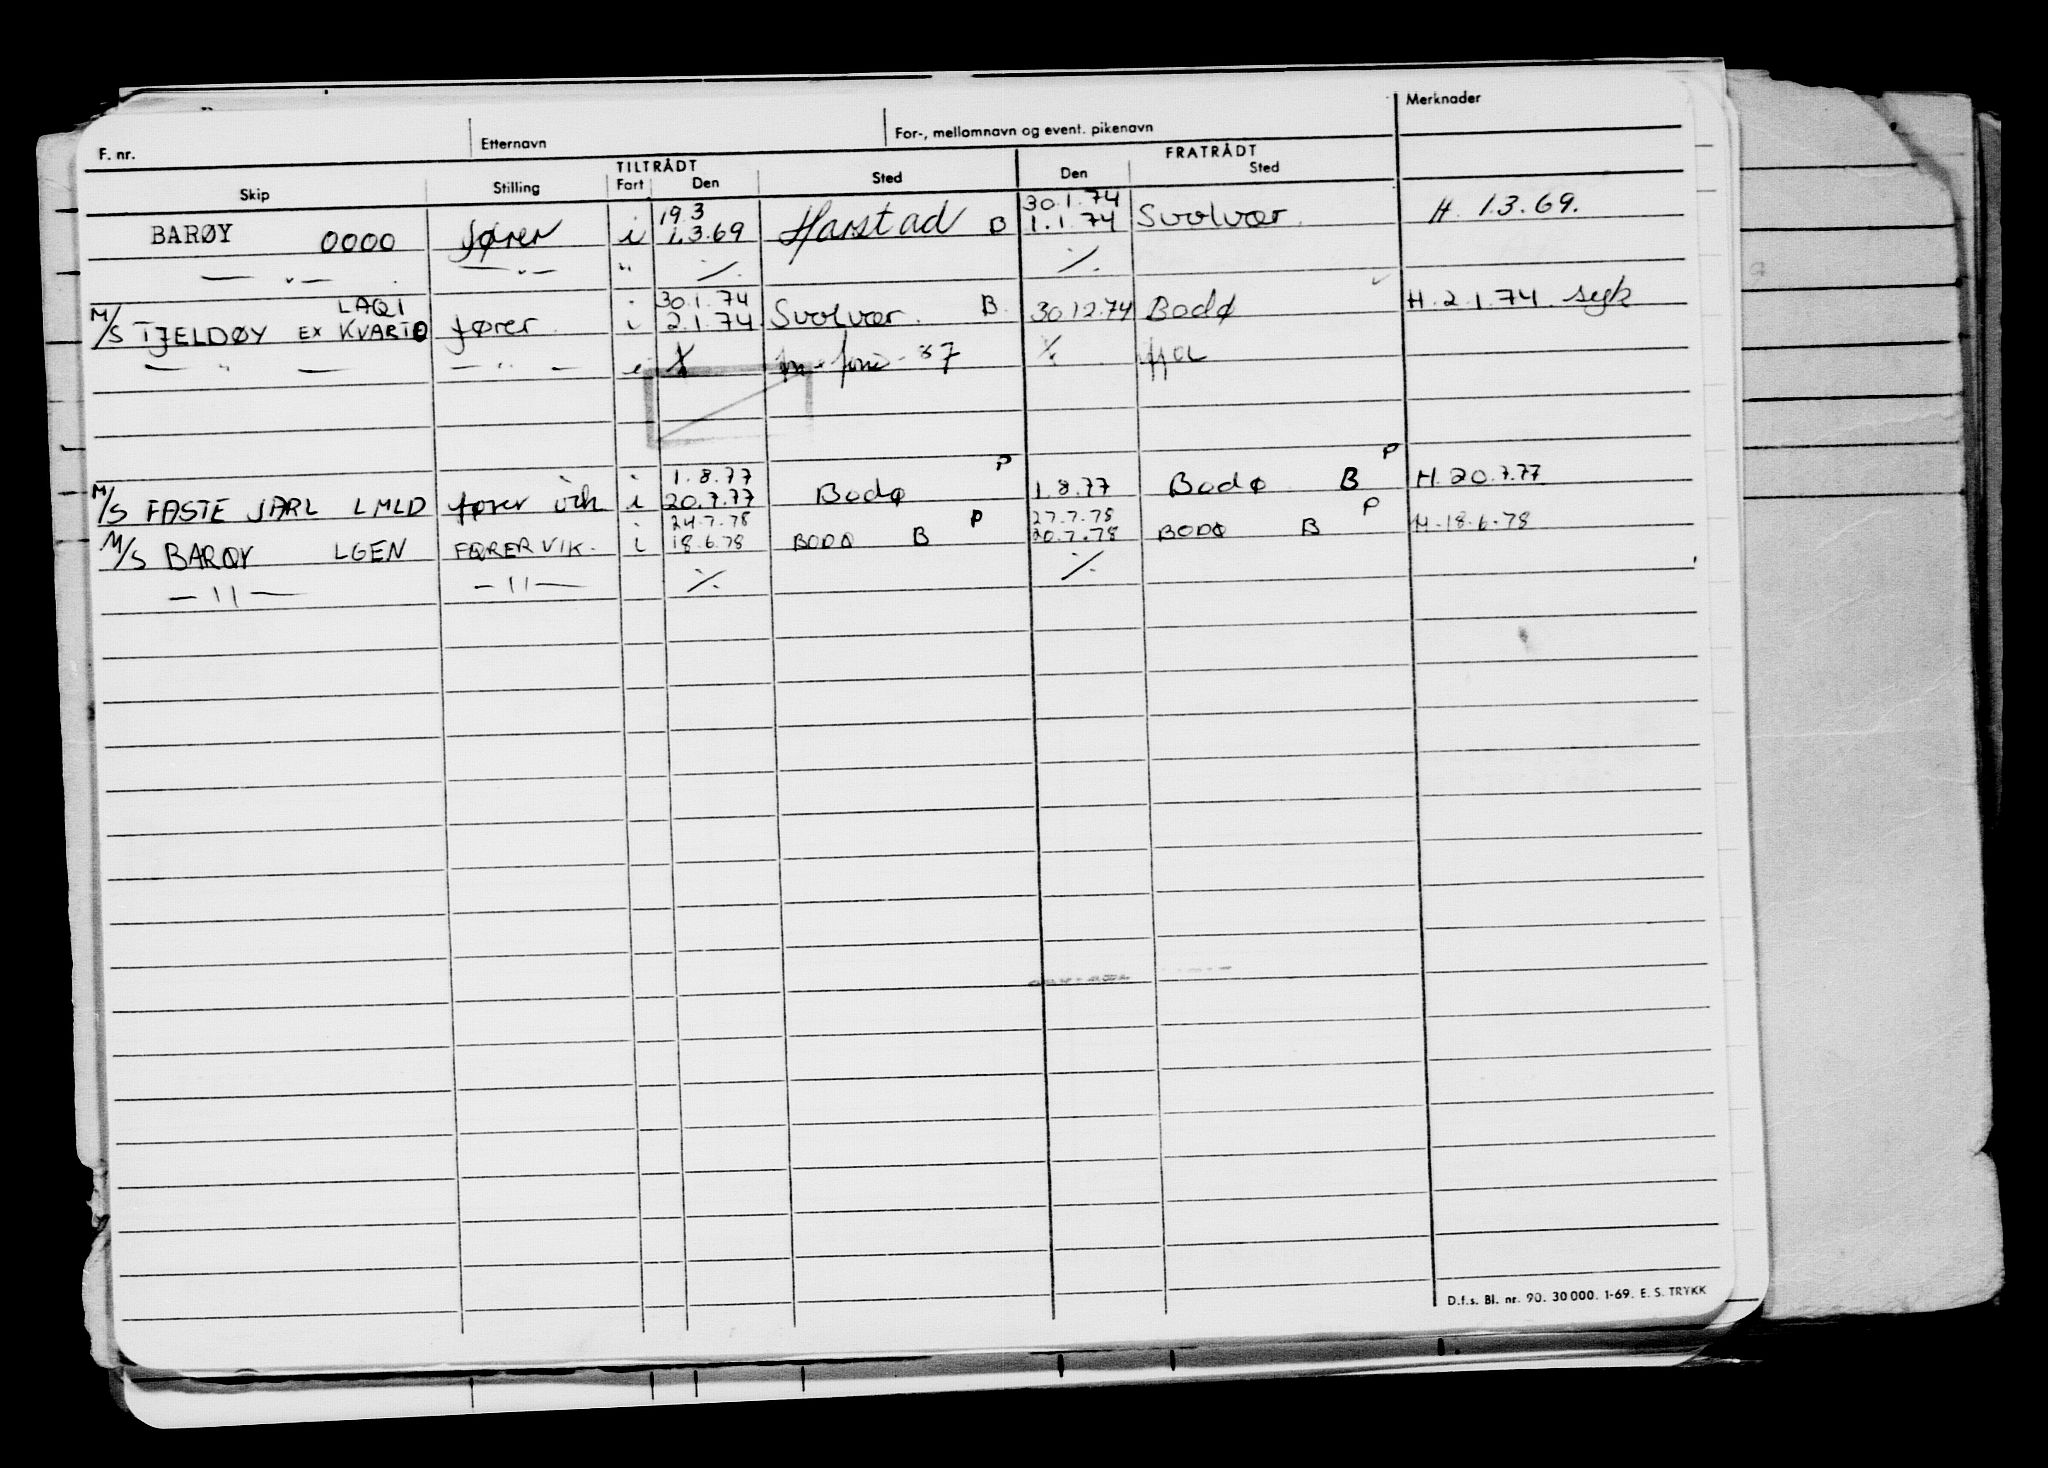 F. nr. Etternavn For-, mellomnavn og event. pikenavn Merknader
TILTRÅDT FRATRÅDT
Skip Stilling Fart Den Sted Den Sted
19.3 30.1.74
BARØY 0000 fører i 1.3.69 Harstad B 1.1.74 Svolvær. H. 1.3.69.
— " — — " — " ./. ./.
LAQI 30.1.74
M/S TJELDØY EX KVARTO fører i 2.1.74 Svolvær. B 30.12.74 Bodø H. 2.1.74. syk
— " — — " — i
1.8.77 P P
M/S FASTE JARL LMLD fører vik i 20.7.77 Bodø 1.8.77 Bodø B H. 20.7.77
24.7.78 P 27.7.78 P
M/S BARØY LGEN FØRER VIK. i 18.6.78 BODØ B 20.7.78 BODØ B H. 18.6.78
— 11 — — 11 — ./. ./.
D.f.s. Bl. nr. 90. 30 000. 1-69. E. S. TRYKK